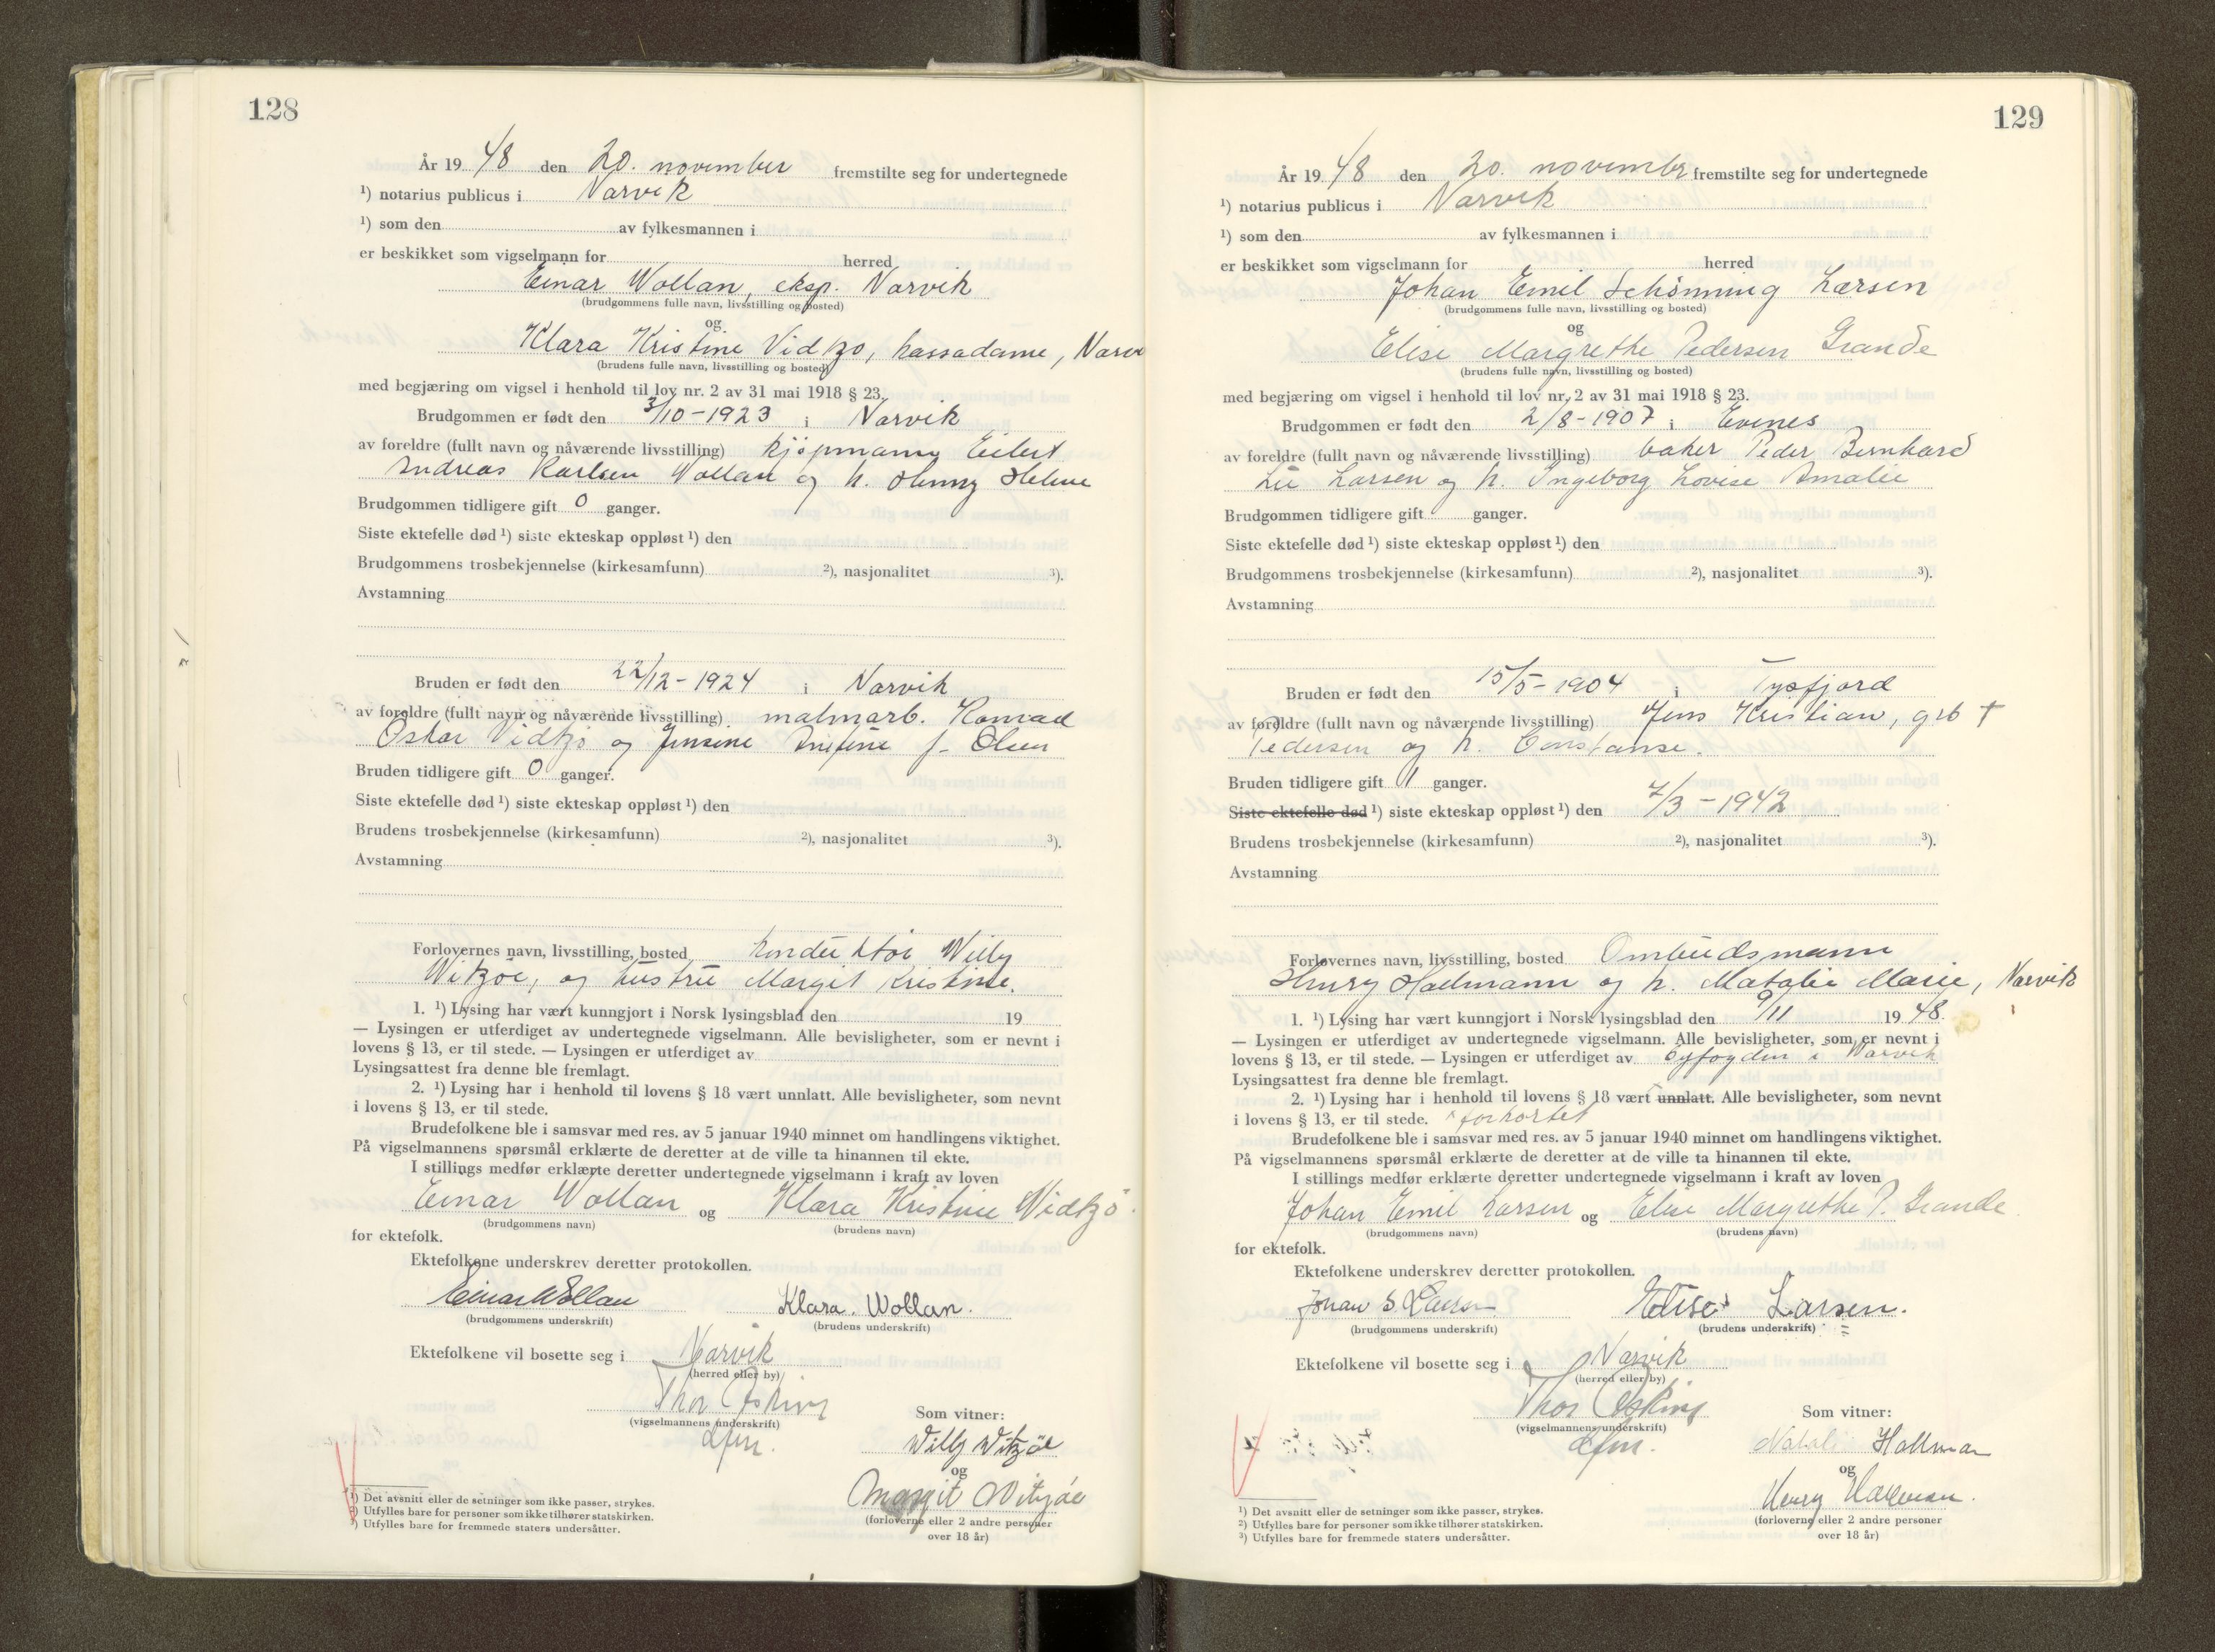 128
År 19 48 den 20. november fremstilte seg for undertegnede
¹) notarius publicus i Narvik
¹) som den av fylkesmannen i
er beskikket som vigselmann for herred
Einar Wollan, eksp. Narvik
(brudgommens fulle navn, livsstilling og bosted)
og
Klara Kristine Vidtzø, kassadame, Narv
(brudens fulle navn, livsstilling og bosted)
med begjæring om vigsel i henhold til lov nr. 2 av 31 mai 1918 § 23.
Brudgommen er født den 3/10-1923 i Narvik
av foreldre (fullt navn og nåværende livsstilling) kjøpmann Eilert
Andreas Karlsen Wollan og h. Henny Helene
Brudgommen tidligere gift 0 ganger.
Siste ektefelle død ¹) siste ekteskap oppløst ¹) den
Brudgommens trosbekjennelse (kirkesamfunn) ²), nasjonalitet ³).
Avstamning
Bruden er født den 22/12-1924 i Narvik
av foreldre (fullt navn og nåværende livsstilling) malmarb. Konrad
Oskar Vidtzø og Jensine f. Olsen
Bruden tidligere gift 0 ganger.
Siste ektefelle død ¹) siste ekteskap oppløst ¹) den
Brudens trosbekjennelse (kirkesamfunn) ²), nasjonalitet ³).
Avstamning
Forlovernes navn, livsstilling, bosted konduktør Willy
Witzøe, og hustru Margit Kristine.
1. ¹) Lysing har vært kunngjort i Norsk lysingsblad den 19
— Lysingen er utferdiget av undertegnede vigselmann. Alle bevisligheter, som er nevnt i
lovens § 13, er til stede. — Lysingen er utferdiget av
Lysingsattest fra denne ble fremlagt.
2. ¹) Lysing har i henhold til lovens § 18 vært unnlatt. Alle bevisligheter, som nevnt
i lovens § 13, er til stede.
Brudefolkene ble i samsvar med res. av 5 januar 1940 minnet om handlingens viktighet.
På vigselmannens spørsmål erklærte de deretter at de ville ta hinannen til ekte.
I stillings medfør erklærte deretter undertegnede vigselmann i kraft av loven
Einar Wollan og Klara Kristine Widtzø.
(brudgommens navn) (brudens navn)
for ektefolk.
Ektefolkene underskrev deretter protokollen.
Einar Wollan Klara. Wollan.
(brudgommens underskrift) (brudens underskrift)
Ektefolkene vil bosette seg i Narvik
(herred eller by)
Thor
(vigselmannens underskrift)
Som vitner:
Willy Witzøe
og
Margit Witzøe
(forloverne eller 2 andre personer
over 18 år)
¹) Det avsnitt eller de setninger som ikke passer, strykes.
²) Utfylles bare for personer som ikke tilhører statskirken.
³) Utfylles bare for fremmede staters undersåtter.
129
År 19 48 den 20. novembr fremstilte seg for undertegnede
¹) notarius publicus i Narvik
¹) som den av fylkesmannen i
er beskikket som vigselmann for herred
Johan Emil Schønning Larsen
(brudgommens fulle navn, livsstilling og bosted)
og
Elise Margrethe Pedersen Grande
(brudens fulle navn, livsstilling og bosted)
med begjæring om vigsel i henhold til lov nr. 2 av 31 mai 1918 § 23.
Brudgommen er født den 2/8-1907 i Evenes
av foreldre (fullt navn og nåværende livsstilling) baker Peder Bernhard
Larsen og h. Ingeborg Lovise Amalie
Brudgommen tidligere gift ganger.
Siste ektefelle død ¹) siste ekteskap oppløst ¹) den
Brudgommens trosbekjennelse (kirkesamfunn) ²), nasjonalitet ³).
Avstamning
Bruden er født den 15/5-1904 i Tysfjord
av foreldre (fullt navn og nåværende livsstilling) Jens Kristian, grb †
Pedersen og h. Constanse.
Bruden tidligere gift 1 ganger.
Siste ektefelle død ¹) siste ekteskap oppløst ¹) den 7/3-1942
Brudens trosbekjennelse (kirkesamfunn) ²), nasjonalitet ³).
Avstamning
Forlovernes navn, livsstilling, bosted Ombudsmann
Henry Hallmann og h. Natalie Marie, Narvik
1. ¹) Lysing har vært kunngjort i Norsk lysingsblad den 9/11 19 48.
— Lysingen er utferdiget av undertegnede vigselmann. Alle bevisligheter, som er nevnt i
lovens § 13, er til stede. — Lysingen er utferdiget av byfogden i Narvik
Lysingsattest fra denne ble fremlagt.
2. ¹) Lysing har i henhold til lovens § 18 vært unnlatt. Alle bevisligheter, som nevnt
i lovens § 13, er til stede. forkortet
Brudefolkene ble i samsvar med res. av 5 januar 1940 minnet om handlingens viktighet.
På vigselmannens spørsmål erklærte de deretter at de ville ta hinannen til ekte.
I stillings medfør erklærte deretter undertegnede vigselmann i kraft av loven
Johan Emil Larsen og Elise Margrethe P. Grande
(brudgommens navn) (brudens navn)
for ektefolk.
Ektefolkene underskrev deretter protokollen.
Johan S. Larsen Elise Larsen.
(brudgommens underskrift) (brudens underskrift)
Ektefolkene vil bosette seg i Narvik
(herred eller by)
Thor
(vigselmannens underskrift)
Som vitner:
Natali Hallman
og
Henry Hallman.
(forloverne eller 2 andre personer
over 18 år)
¹) Det avsnitt eller de setninger som ikke passer, strykes.
²) Utfylles bare for personer som ikke tilhører statskirken.
³) Utfylles bare for fremmede staters undersåtter.